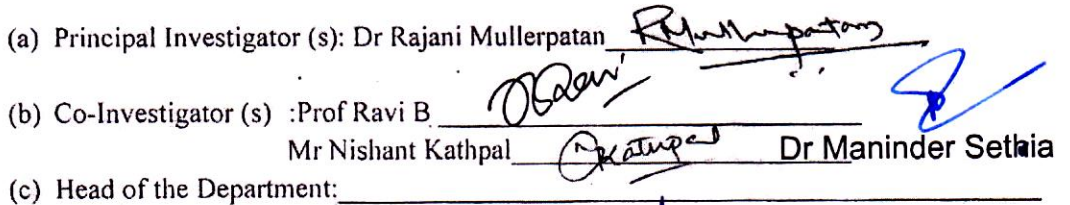 (a) Principal Investigator (s): Dr Rajani Mullerpatan RMullerpatan
(b) Co-Investigator (s) :Prof Ravi B
Mr Nishant Kathpal Kathpal Dr Maninder Sethia
(c) Head of the Department: